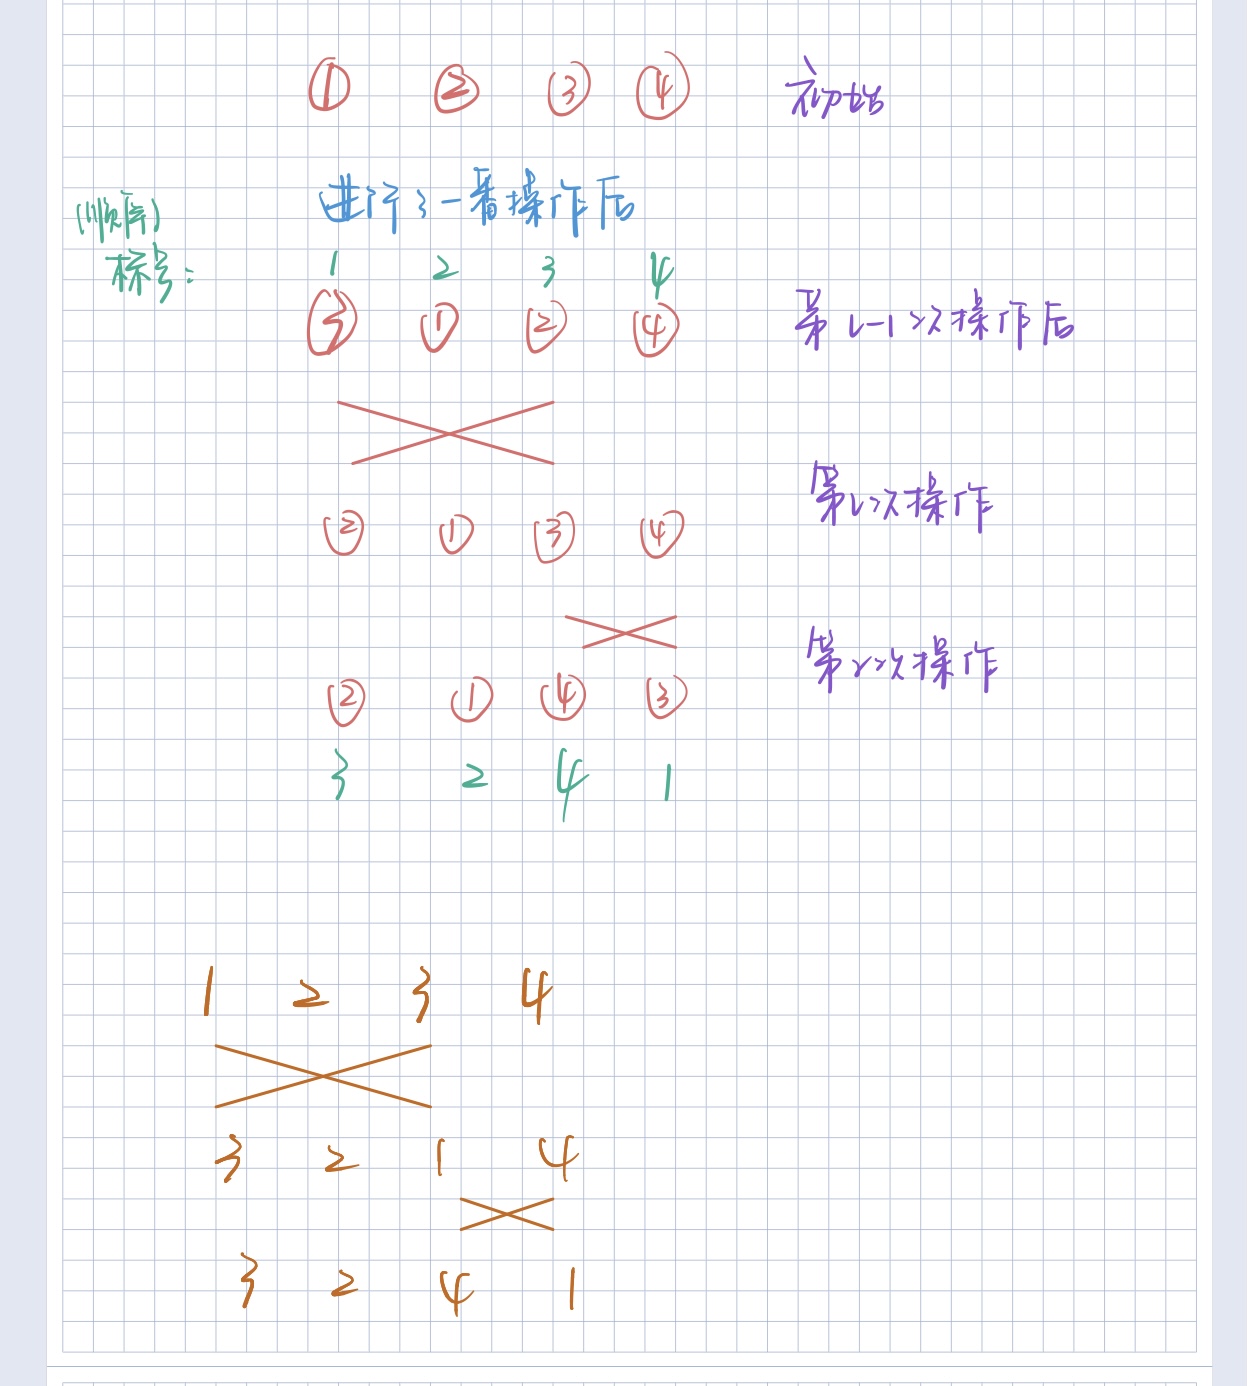 ① ② ③ ④ 初始
进行了一番操作后
(顺序)
标号: 1 2 3 4
③ ① ② ④ 第l-1次操作后
第l次操作
② ① ③ ④
第r次操作
② ① ④ ③
3 2 4 1
1 2 3 4
3 2 1 4
3 2 4 1